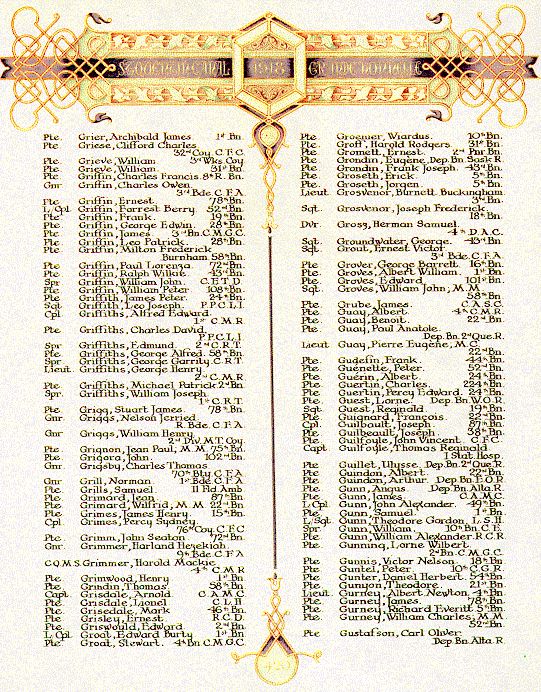 1918
Pte. Grier, Archibald James. 1st Bn.
Pte. Griese, Clifford Charles
32nd Coy. C.F.C.
Pte. Grieve, William 3rd Wks. Coy
Pte. Grieve, William 31st Bn.
Pte. Griffin, Charles Francis. 8th R. Bn.
Gnr Griffin, Charles Owen
3rd Bde. C.F.A.
Pte. Griffin, Ernest. 78th Bn.
L. Cpl. Griffin, Forrest Berry. 52nd Bn.
Pte. Griffin, Frank. 19th Bn.
Pte. Griffin, George Edwin. 28th Bn.
Pte. Griffin, James 3rd Bn. C.M.G.C.
Pte. Griffin, Leo Patrick. 28th Bn.
Pte. Griffin, Milton Frederick
Burnham. 58th Bn.
Pte. Griffin, Paul Lorenza. 72nd Bn.
Pte. Griffin, Ralph Wilkie. 43rd Bn.
Spr Griffin, William John. C.E.T.D.
Pte. Griffin, William Peter 108th Bn.
Pte. Griffith, James Peter. 24th Bn.
Sgt. Griffith, Leo Joseph. P.P.C.L.I.
Cpl. Griffiths, Alfred Edward.
1st C.M.R.
Pte. Griffiths, Charles David.
P.P.C.L.I.
Spr Griffiths, Edmund. 2nd C.R.T.
Pte. Griffiths, George Alfred. 58th Bn.
Spr Griffiths, George Garrity. C.R.T.
Lieut. Griffiths, George Henry.
2nd C.M.R.
Pte. Griffiths, Michael Patrick. 2nd Bn.
Spr. Griffiths, William Joseph.
1st C.R.T.
Pte. Grigg, Stuart James. 78th Bn.
Gnr. Griggs, Nelson Jerried.
R. Bde. C.F.A.
Gnr Griggs, William Henry.
2nd Div. M.T. Coy.
Pte. Grignon, Jean Paul, M.M. 75th Bn.
Pte. Grigora, John. 102nd Bn.
Gnr. Grigsby, Charles Thomas
70th Bty. C.F.A.
Gnr Grill, Norman. 1st Bde. C.F.A.
Pte. Grills, Samuel. 11 Fld. Amb
Pte. Grimard, Leon. 87th Bn.
Pte. Grimard, Wilfrid, M.M. 22nd Bn.
Pte. Grimes, James Henry. 15th Bn.
Cpl. Grimes, Percy Sydney.
76th Coy. C.F.C
Pte. Grimm, John Seaton 72nd Bn.
Gnr. Grimmer, Harland Hezekiah
9th Bde. C.F.A
C.Q.M.S. Grimmer, Harold Mackie
4th C.M.R
Pte. Grimwood, Henry 1st Bn.
Pte. Grindin, Thomas 58th Bn.
Capt. Grisdale, Arnold C.A.M.C.
Pte. Grisdale, Lionel C.L.H
Pte. Grisedale, Mark 46th Bn.
Pte. Grisley, Ernest R.C.D.
Pte. Griswould, Edward 2nd Bn.
L. Cpl. Groat, Edward Burty 1st Bn.
Pte. Groat, Stewart. 4th Bn C.M.G.C.
Pte. Groemer, Wiardus. 10th Bn.
Pte. Groff, Harold Rodgers 31st Bn.
Pte. Gromett, Ernest. 2nd Pnr Bn.
Pte. Grondin, Eugène, Dep. Bn. Sask. R.
Pte. Grondin, Frank Joseph. 43rd Bn.
Pte. Groseth, Erick 5th Bn.
Pte. Groseth, Jorgen. 5th Bn.
Lieut. Grosvenor, Burnett Buckingham
3rd Bn.
Sgt. Grosvenor, Joseph Frederick.
18th Bn.
Dvr. Grosz, Herman Samuel.
4th D.A.C.
Sgt. Groundwater, George. 43rd Bn.
Sgt. Grout, Ernest Victor.
3rd Bde. C.F.A.
Pte. Grover, George Barrett. 16th Bn.
Pte. Groves, Albert William. 1st Bn.
Pte. Groves, Edward. 101st Bn.
Sgt. Groves, William John, M.M.
58th Bn.
Pte. Grube, James. C.A.S.C.
Pte. Guay, Albert. 4th C.M.R.
Pte. Guay, Benoit. 22nd Bn.
Pte. Guay, Paul Anatole.
Dep. Bn. 2nd Que. R.
Lieut Guay, Pierre Eugène, M.C.
22nd Bn.
Pte. Gudefin, Frank. 44th Bn.
Pte. Guénette, Peter. 52nd Bn.
Pte. Guérin, Albert. 24th Bn.
Pte. Guertin, Charles. 224th Bn.
Pte. Guertin, Percy Edward. 24th Bn.
Pte. Guest, Lorne. Dep. Bn. W.O.R.
Sgt. Guest, Reginald. 19th Bn.
Pte. Guignard, François. 22nd Bn.
Cpl. Guilbault, Joseph. 87th Bn.
Pte. Guilbeault, Joseph. 32nd Bn.
Pte. Guilfoyle, John Vincent C.F.C.
Capt. Guilfoyle, Thomas Reginald
1 Stat. Hosp
Pte. Guillet, Ulysse. Dep. Bn. 2nd Que. R.
Pte. Guindon, Albert. 22nd Bn.
Pte. Guindon, Arthur. Dep. Bn. E.O.R
Pte. Gunn, Angus. Dep. Bn. Alta R.
Pte. Gunn, James. C.A.M.C.
L. Cpl. Gunn, John Alexander. 49th Bn.
Pte. Gunn, Samuel. 1st Bn.
L/Sgt. Gunn, Theodore Gordon. L.S.H
Spr. Gunn, William. 10th Bn. C.E.
Pte. Gunn, William Alexander. R.C.R.
Pte. Gunning, Lorne Wilbert
2nd Bn. C.M.G.C.
Pte. Gunnis, Victor Nelson. 18th Bn.
Pte. Guntel, Peter. 10th C.G.R.
Pte. Gunter, Daniel Herbert. 54th Bn
Pte. Gunyon, Theodore. 21st Bn.
Lieut. Gurney, Albert Newton. 4th Bn.
Pte. Gurney, James. 78th Bn.
Pte. Gurney, Richard Everitt 5th Bn.
Pte. Gurney, William Charles, M.M.
52nd Bn.
Pte Gustafson, Carl Oliver
Dep. Bn. Alta. R
420